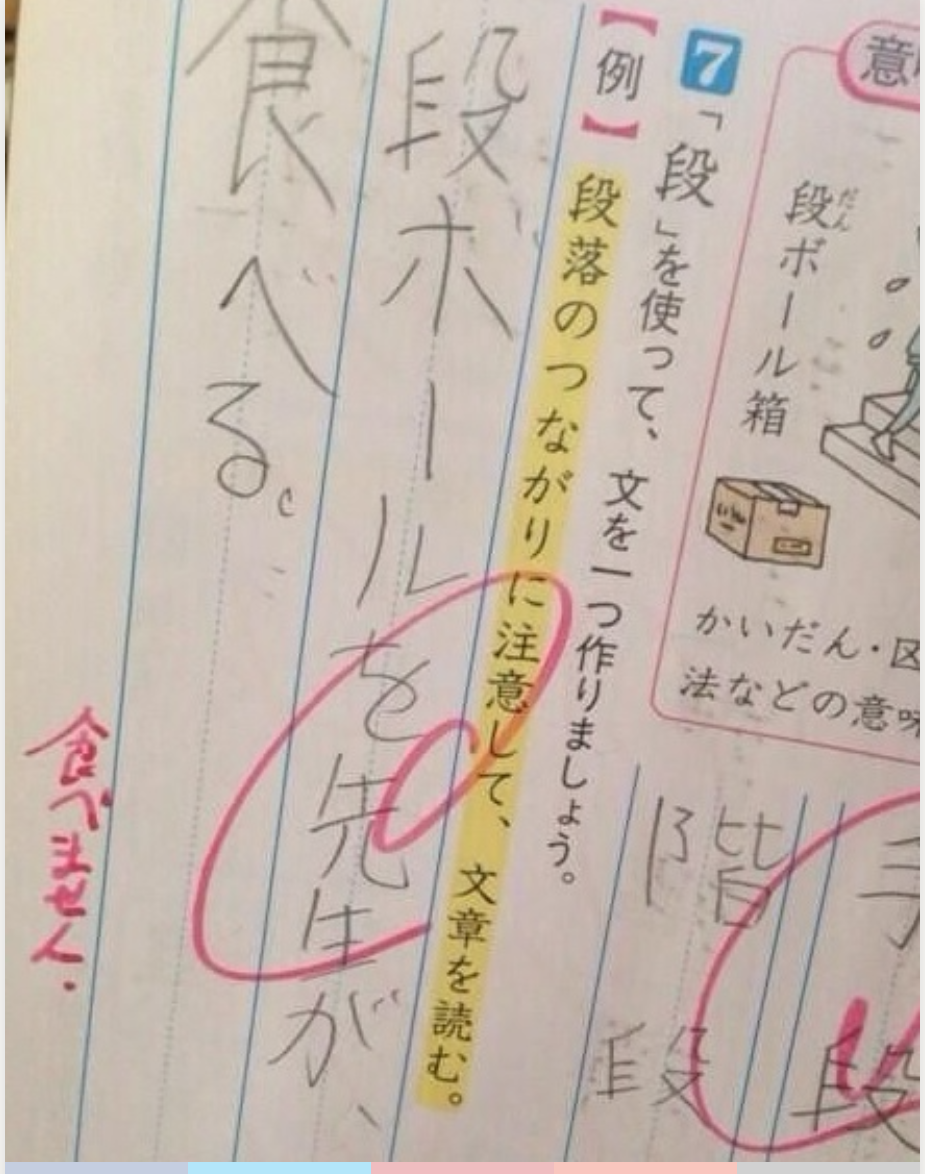 意
段ボール箱
だん
かいだん・区
法などの意味
7 「段」を使って、文を一つ作りましょう。
【例】段落のつながりに注意して、文章を読む。
手段
階段
段ボールを先生が、
食べる。
食べません.